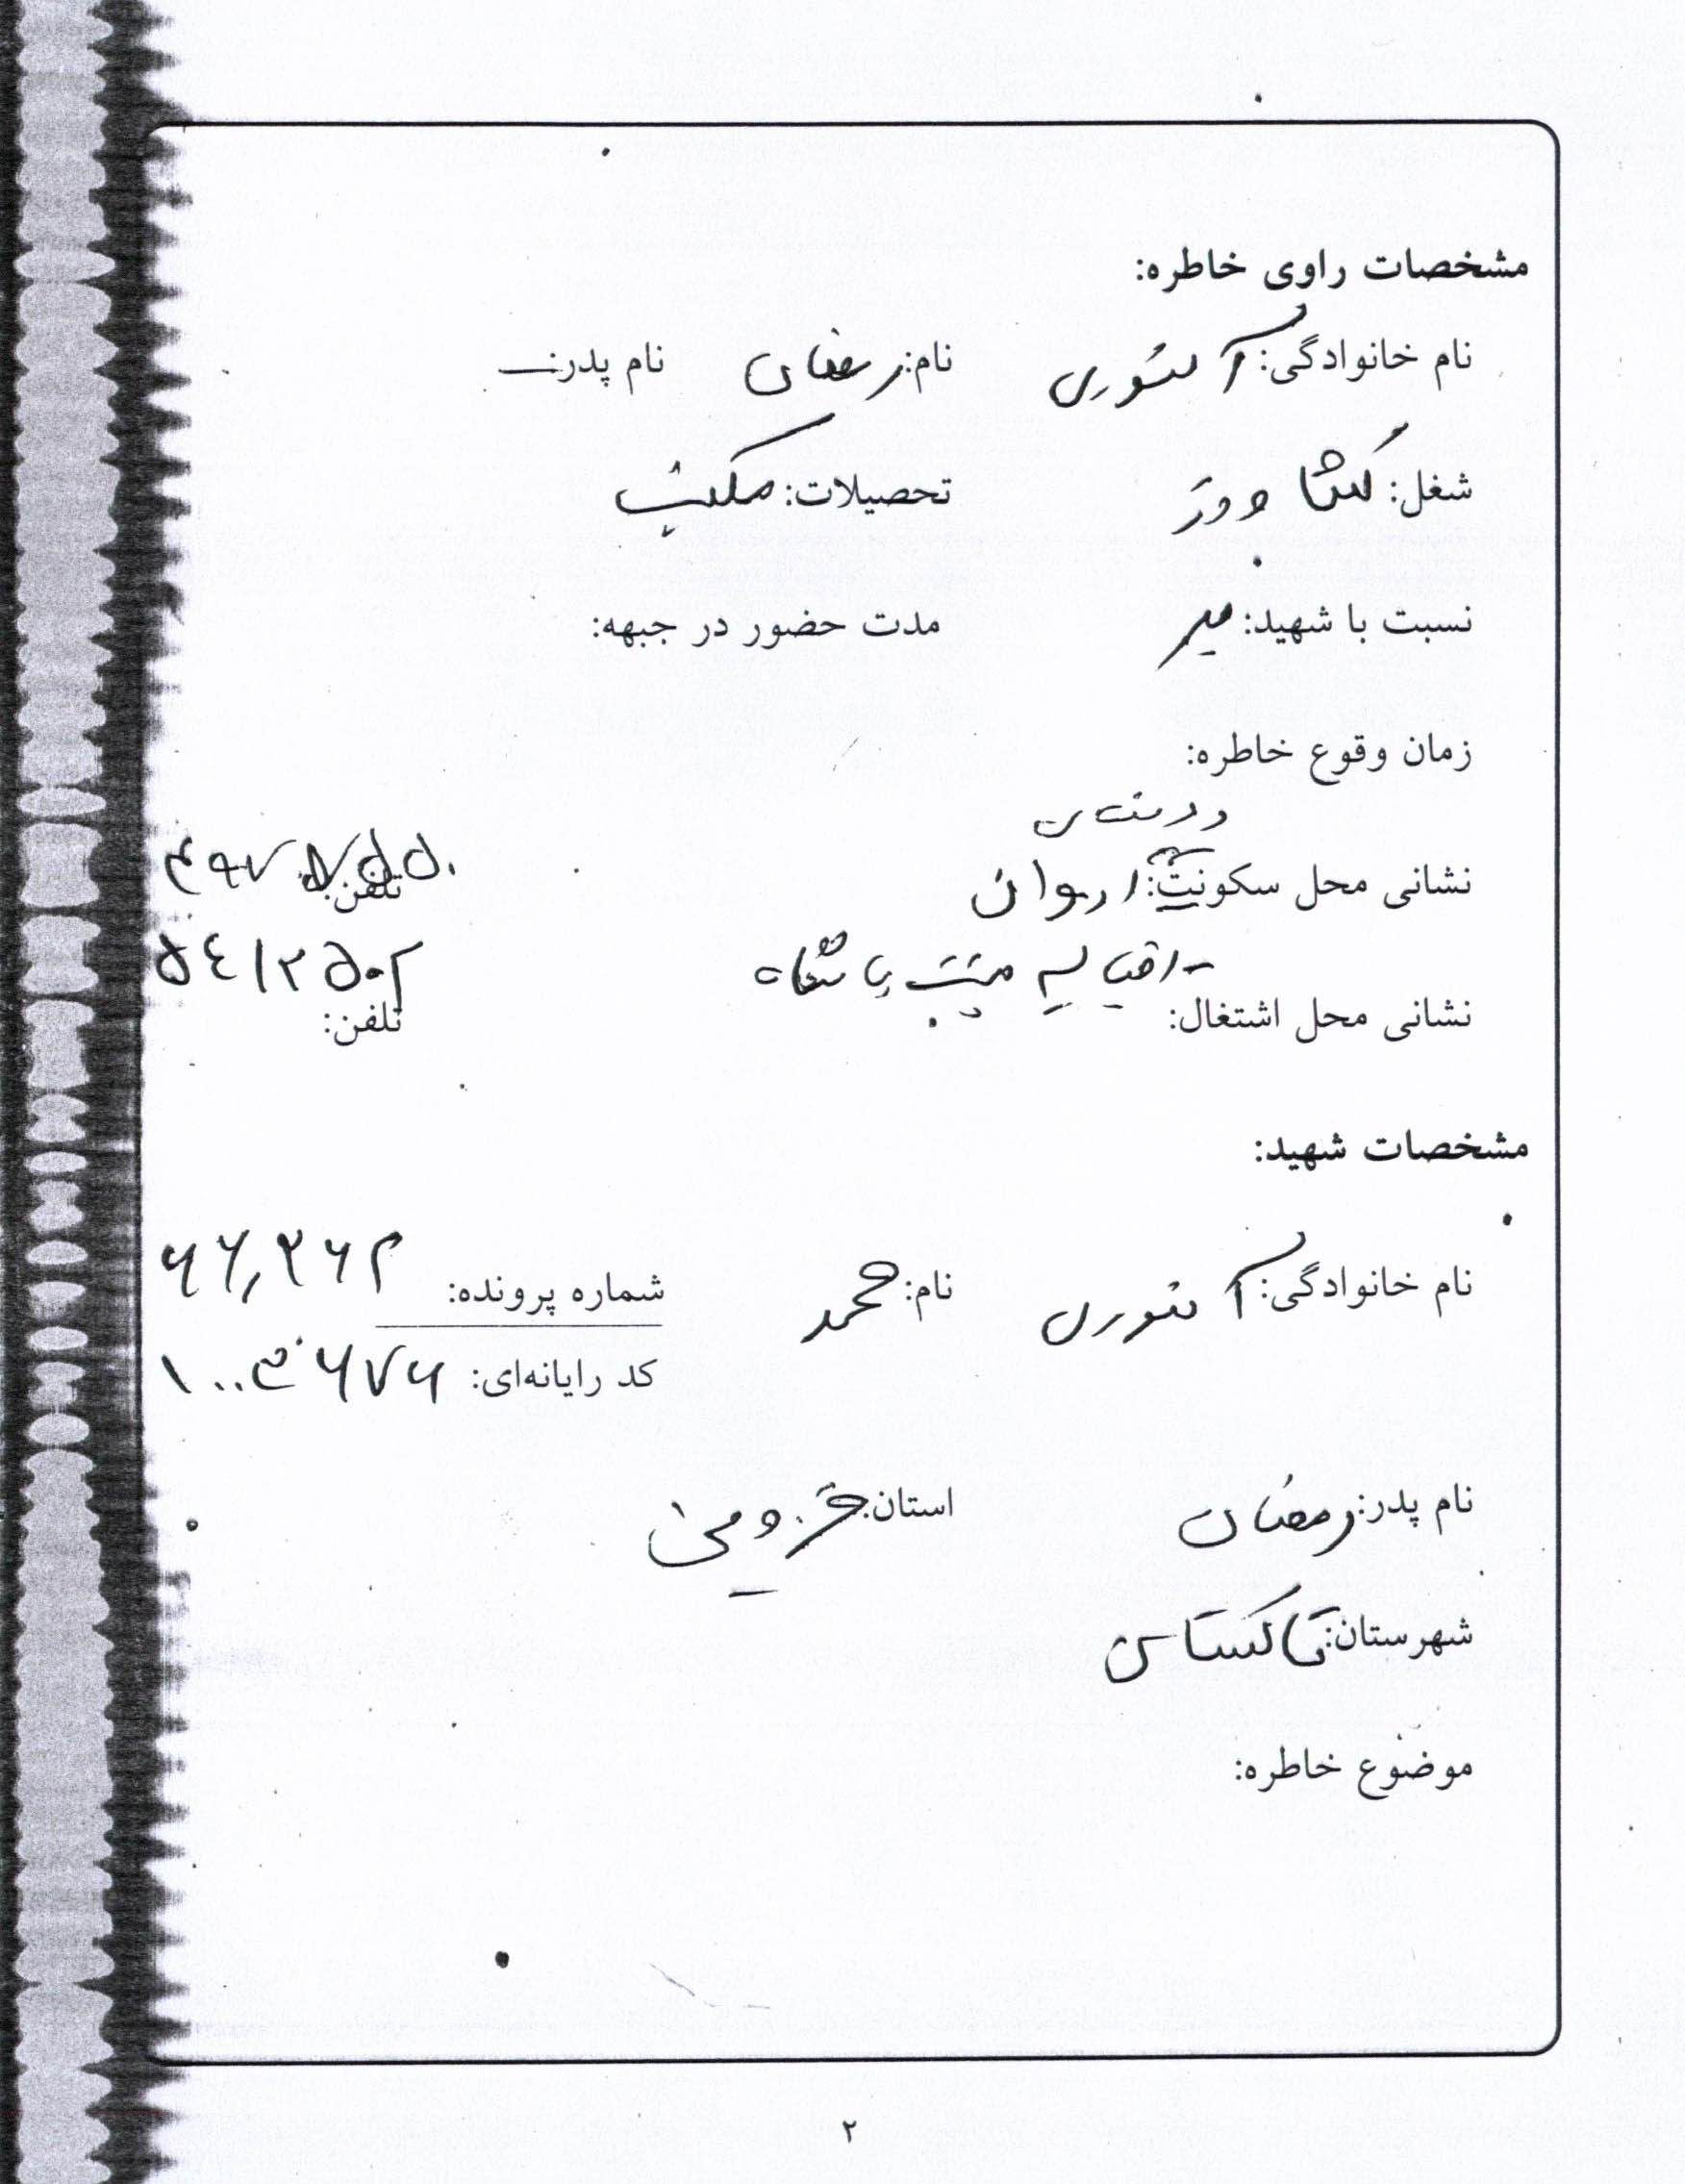 مشخصات راوی خاطره:
نام خانوادگی: آشوری نام: رمضان نام پدر: —
شغل: کشاورز تحصیلات: مکتب
نسبت با شهید: پدر مدت حضور در جبهه:
زمان وقوع خاطره:
نشانی محل سکونت: تلفن:
اقبالیه پشت باشگاه
نشانی محل اشتغال: تلفن:
مشخصات شهید:
نام خانوادگی: آشوری نام: محمد شماره پرونده:
کد رایانه‌ای:
نام پدر: رمضان استان: قزوین
شهرستان: تاکستان
موضوع خاطره:
۲